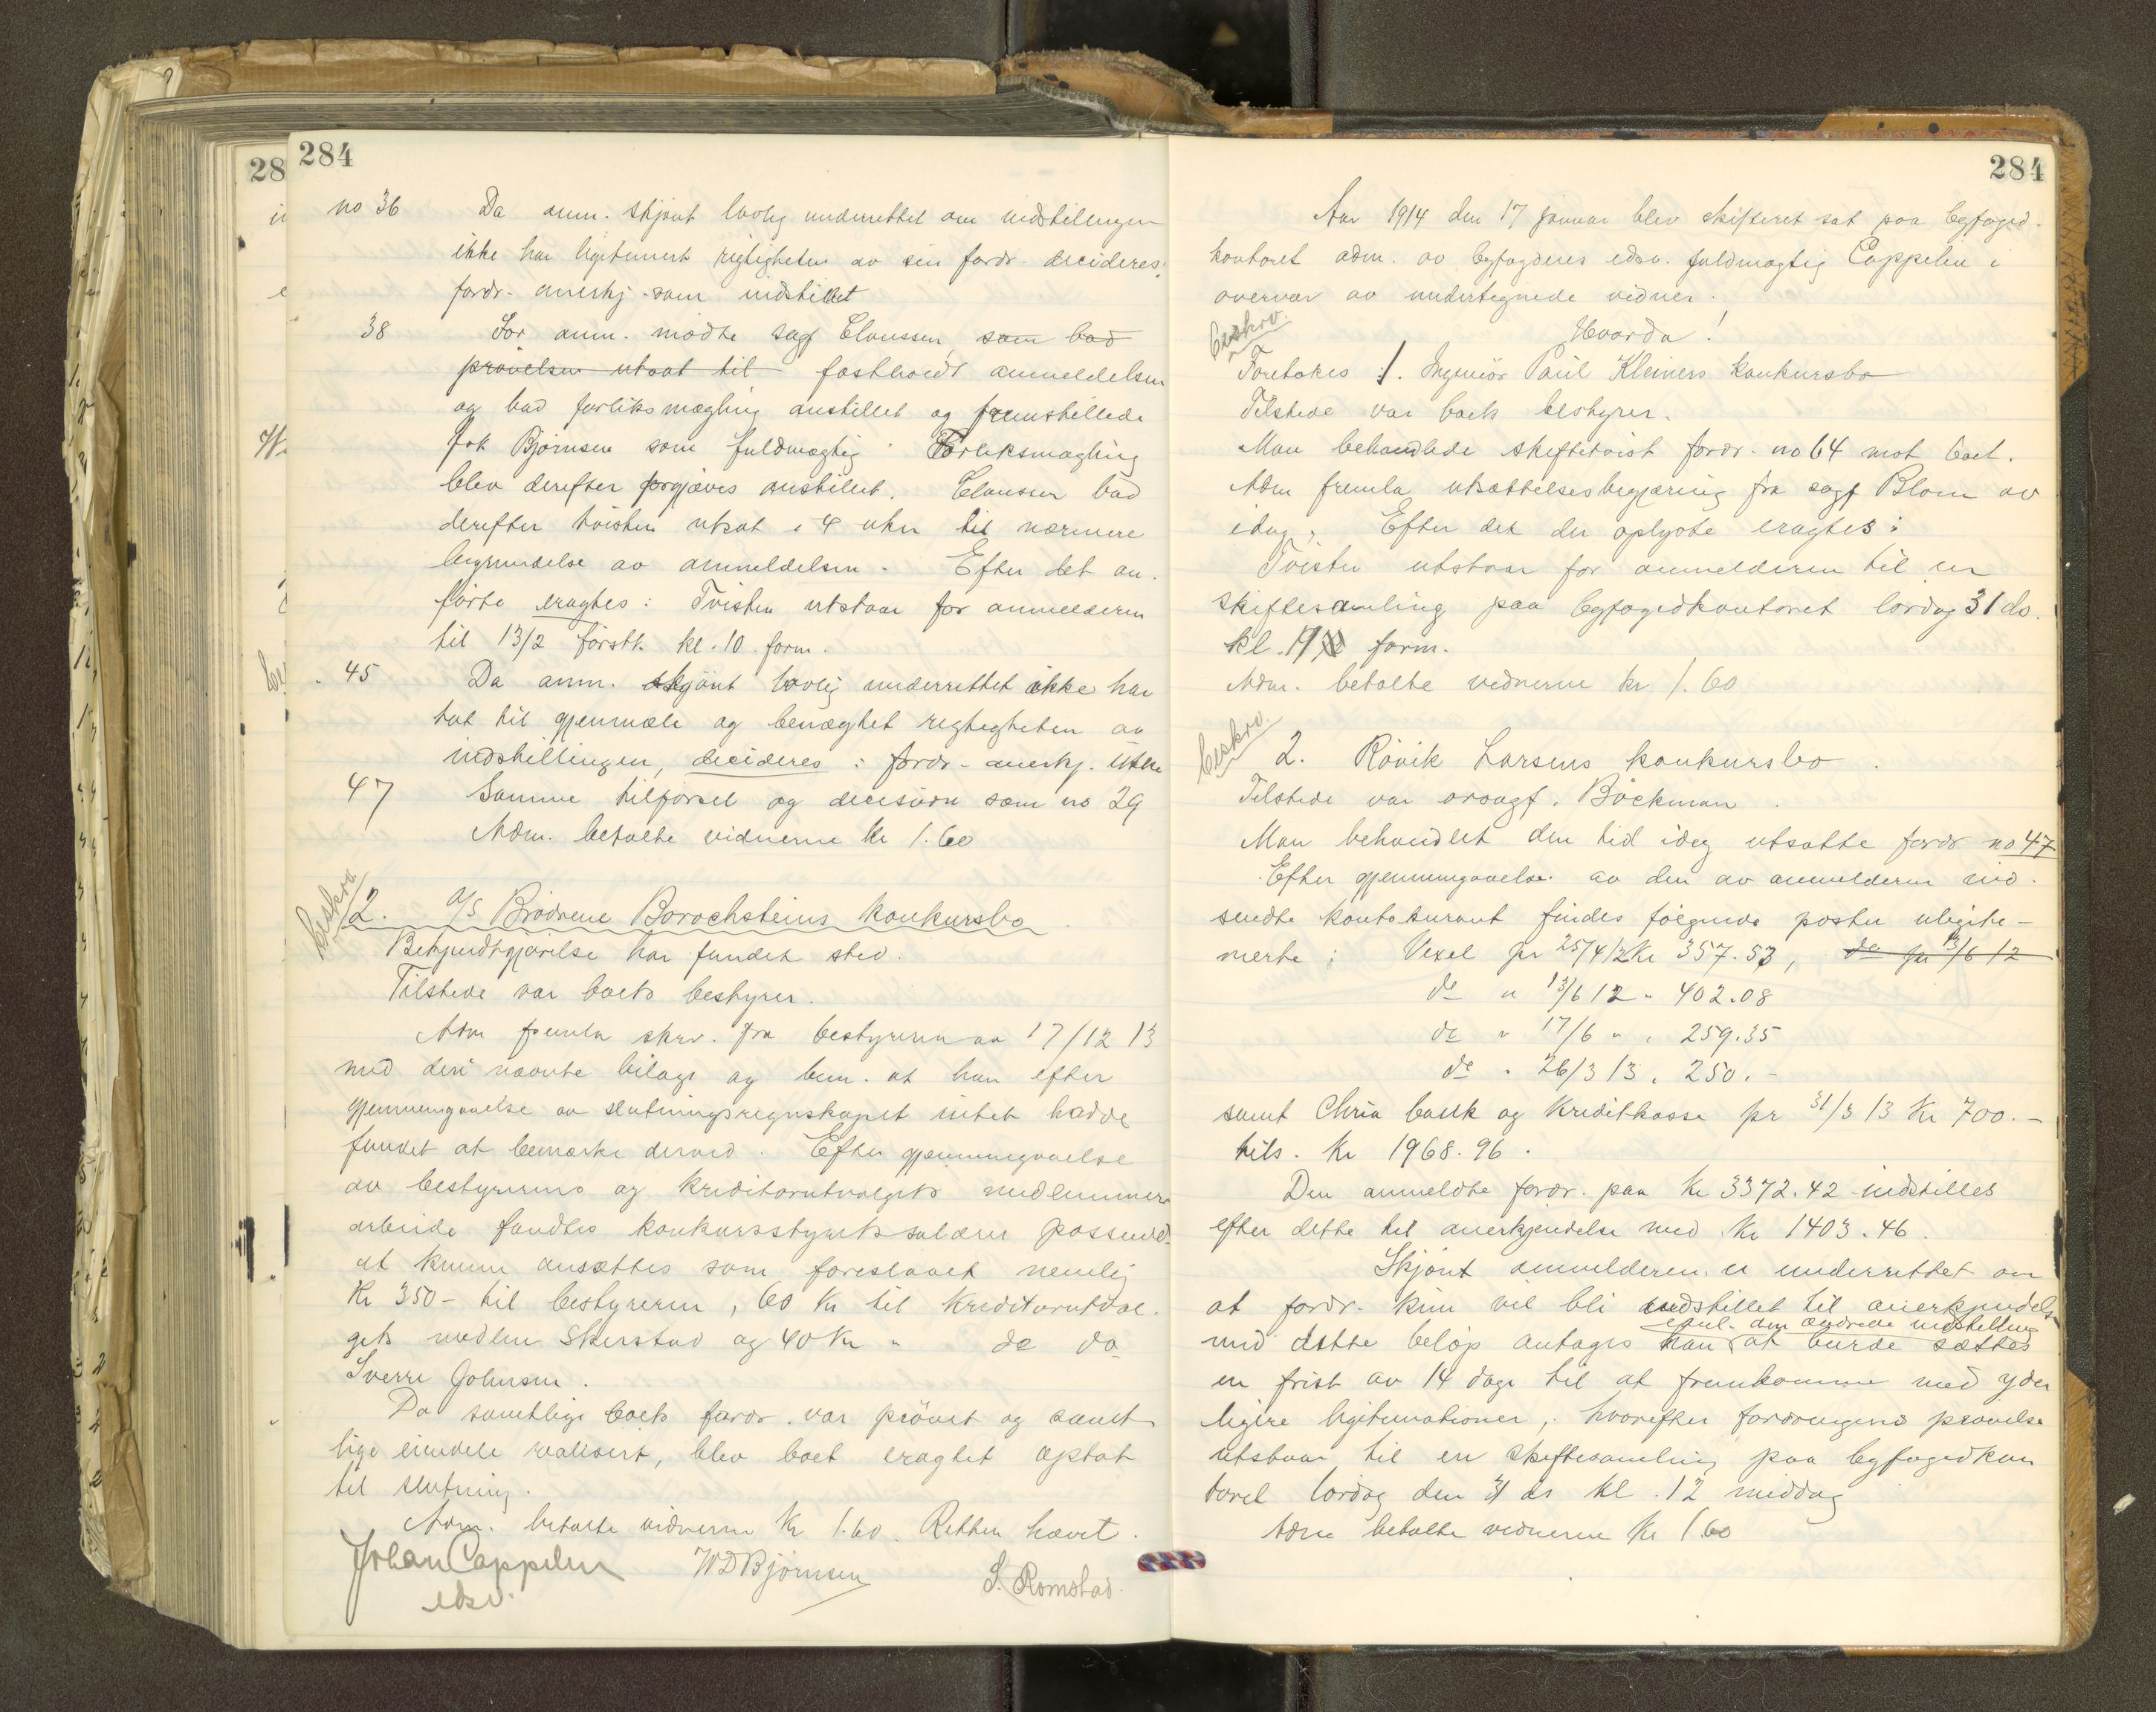 284
no 36 Da anm. skjønt lovlig underrettet om indstillingen
ikke har legitimert rigtigheten av sin fordr. decideres:
fordr. anerkj. som indstillet
38 For anm. mødte sagf Claussen, som bad
prøvelsen utsat til fastholdt anmeldelsen
og bad forliksmægling anstillet og fremstillede
Joh Bjørnsen som fuldmægtig. Forliksmægling
blev derefter forgjæves anstillet. Claussen bad
derefter tvisten utsat i 4 uker til nærmere
begrundelse av anmeldelsen. Efter det an-
førte eragtes: Tvisten utstaar for anmelderen
til 13/2 førstk. kl. 10 form.
45 Da anm. skjønt lovlig underrettet ikke har
tat til gjenmæle og benægtet rigtigheten av
indstillingen, decideres: fordr. anerkj. ikke
47 Samme tilførsel og decision som no 29
Adm. betalte vidnerne kr 1.60
beskrv.
2. A/S Brødrene Borochsteins konkursbo
Bekjendtgjørelse har fundet sted.
Tilstede var boets bestyrer.
Adm fremla skrv. fra bestyreren av 17/12 13
med deri nævnte bilage og bem. at han efter
gjennemgaaelse av slutningsregnskapet intet hadde
fundet at bemærke derved. Efter gjennemgaaelse
av bestyrerens og kreditorutvalgets medlemmers
arbeide fandtes konkursstyrets salærer passende
at kunne ansættes som foreslaaet nemlig
Kr 350- til bestyreren, 60 Kr til kreditorutval-
gets medlem Skerstad og 40 Kr " do do
Sverre Johnsen.
Da samtlige boets fordr. var prøvet og samt-
lige eiendele realisert, blev boet eragtet optat
til slutning.
Adm. betalte vidnerne Kr 1.60. Retten hævet.
Johan Cappelen WDBjørnsen S. Romstad.
edsv.
284
Aar 1914 den 17 januar blev skifteret sat paa byfoged-
kontoret adm. av byfogdens edsv. fuldmægtig Cappelen i
overvær av undertegnede vidner.
Hvorda!
beskrv.
Foretokes 1. Ingeniør Paul Kleiners konkursbo
Tilstede var boets bestyrer.
Man behandlede skiftetvist fordr. no 64 mot boet.
Adm fremla utsættelsesbegjæring fra sagf Blom av
idag. Efter det der oplyste eragtes:
Tvisten utstaar for anmelderen til en
skiftesamling paa byfogedkontoret lørdag 31 ds.
kl. 11 form.
Adm. betalte vidnerne kr 1.60
beskrv.
2. Røvik Larsens konkursbo.
Tilstede var orsagf. Bøckman.
Man behandlet den tid idag utsatte fordr no 47
Efter gjennemgaaelse av den av anmelderen ind-
sendte kontokurant findes følgende poster ulegiti-
merte: Vexel pr 25/4 12 Kr 357.53, do pr 13/6 12
do " 13/6 12 " 402.08
do " 17/6 " " 259.35
do " 26/3 13 " 250.-
samt Chria bank og Kreditkasse pr 31/3 13 Kr 700.-
tils. Kr 1968.96.
Den anmeldte fordr. paa Kr 3372.42 indstilles
efter dette til anerkjendelse med Kr 1403.46.
Skjønt anmelderen er underrettet om
at fordr. kun vil bli indstillet til anerkjendelse
med dette beløp antages han at burde sættes
en frist av 14 dage til at fremkomme med yder-
ligere legitimationer, hvorefter fordringens prøvelse
utstaar til en skiftesamling paa byfogedkon
toret lørdag den 31 ds kl. 12 middag
Adm betalte vidnerne Kr 1.60